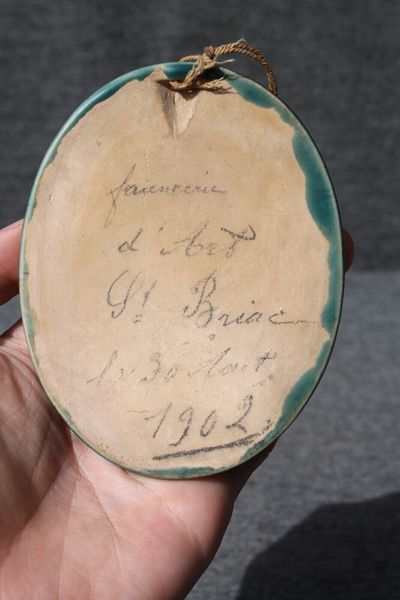 faiencerie
d'Art
St Briac
le 30 Aout
1902.